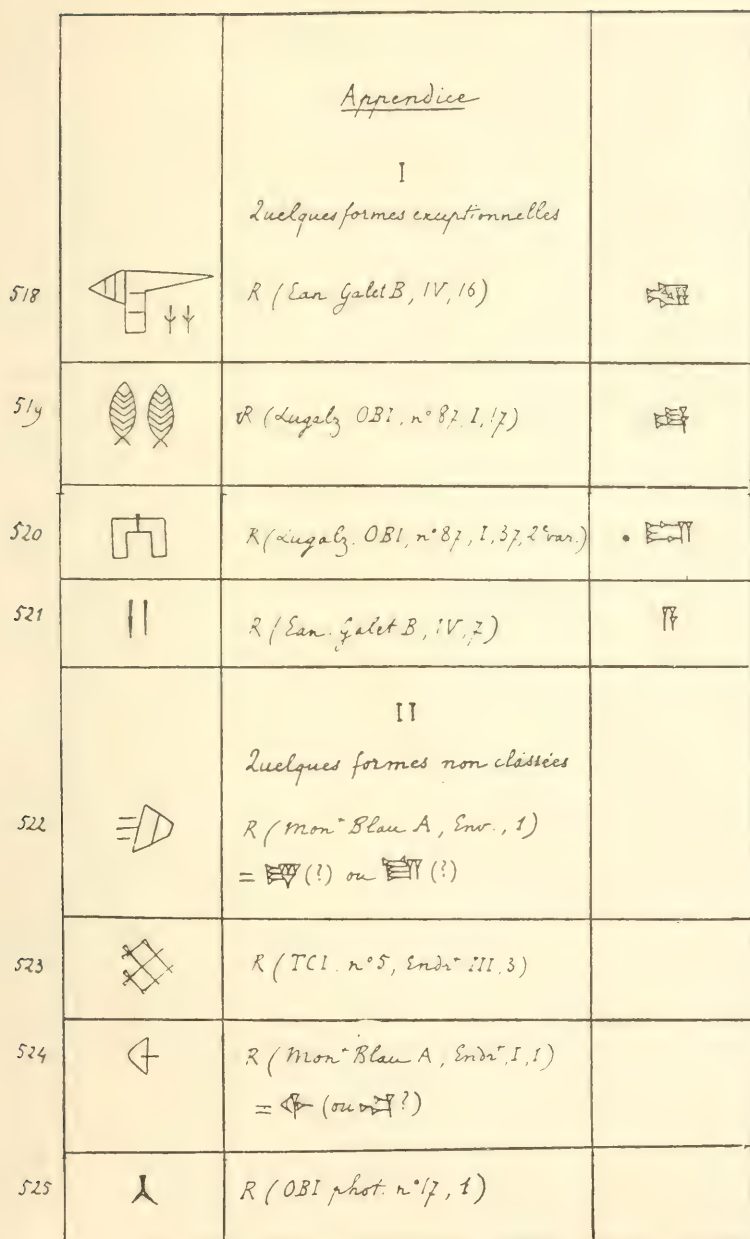 Appendice
I
Quelques formes exceptionnelles
518 R (Ean. Galet B, IV, 16)
519 R (Lugalz. OBI, n° 87, I, 17)
520 R (Lugalz. OBI, n° 87, I, 37, 2e var.)
521 R (Ean. Galet B, IV, 7)
II
Quelques formes non classées
522 R (Mont Blau A, Env., 1)
= (?) ou (?)
523 R (TCI. n° 5, Endrt III, 3)
524 R (Mont Blau A, Endrt, I, 1)
= (ou ?)
525 R (OBI phot. n° 17, 1)